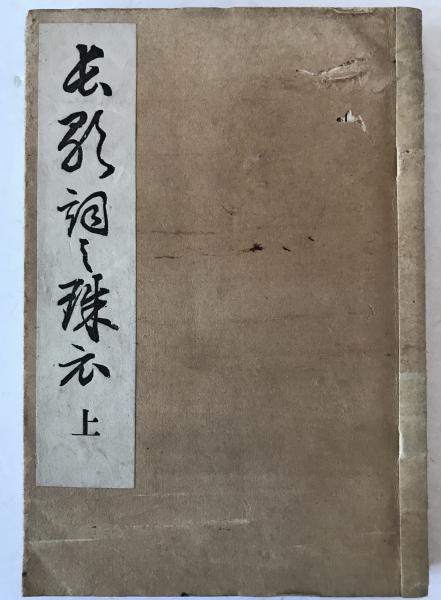 長歌詞之珠衣 上